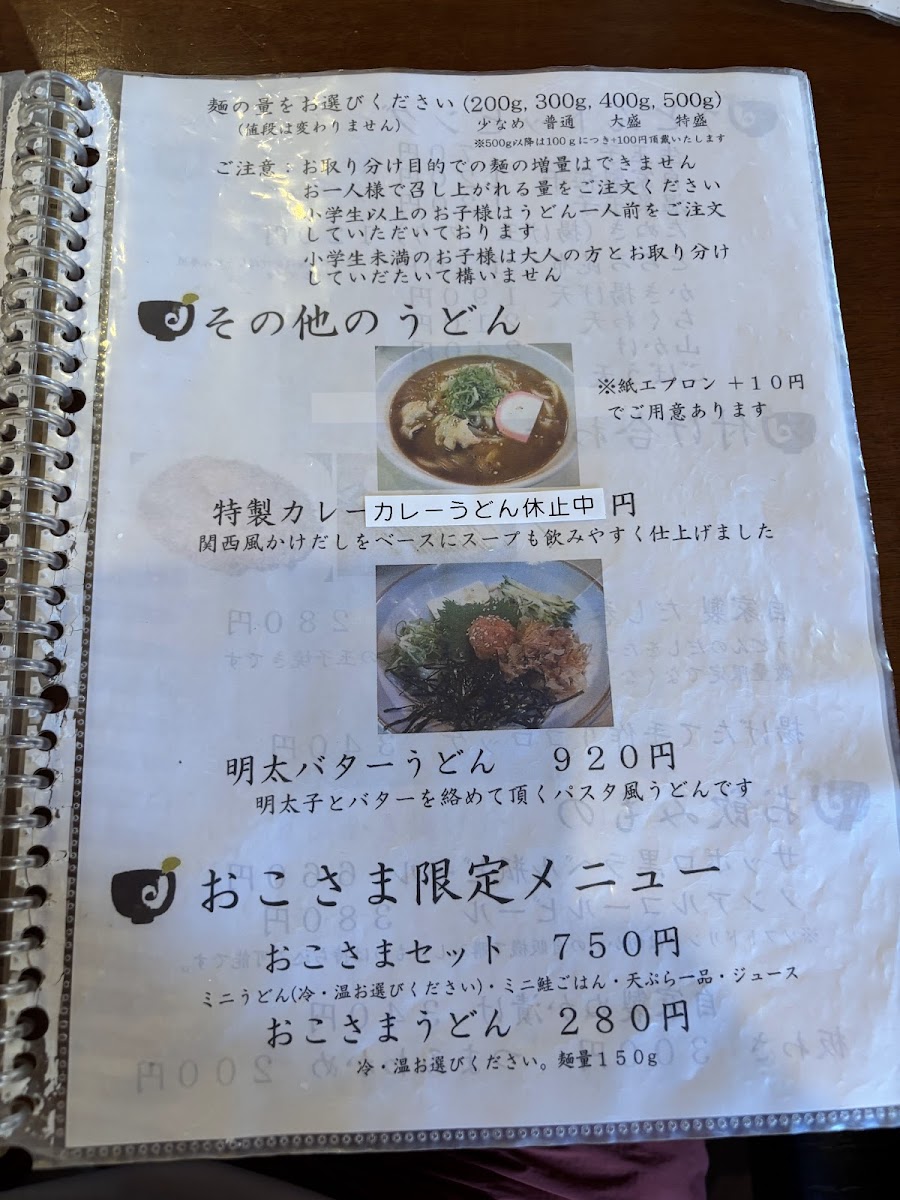 麺の量をお選びください (200g, 300g, 400g, 500g)
(値段は変わりません) 少なめ 普通 大盛 特盛
※500g以降は100gにつき+100円頂戴いたします
ご注意：お取り分け目的での麺の増量はできません
お一人様で召し上がれる量をご注文ください
小学生以上のお子様はうどん一人前をご注文
していただいております
小学生未満のお子様は大人の方とお取り分け
していだたいて構いません
その他のうどん
※紙エプロン +10円
でご用意あります
特製カレー
カレーうどん休止中
円
関西風かけだしをベースにスープも飲みやすく仕上げました
明太バターうどん 920円
明太子とバターを絡めて頂くパスタ風うどんです
おこさま限定メニュー
おこさまセット 750円
ミニうどん(冷・温お選びください)・ミニ鮭ごはん・天ぷら一品・ジュース
おこさまうどん 280円
冷・温お選びください。麺量150g